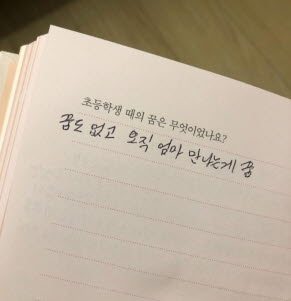 초등학생 때의 꿈은 무엇이었나요?
꿈도 없고 오직 엄마 만나는게 꿈